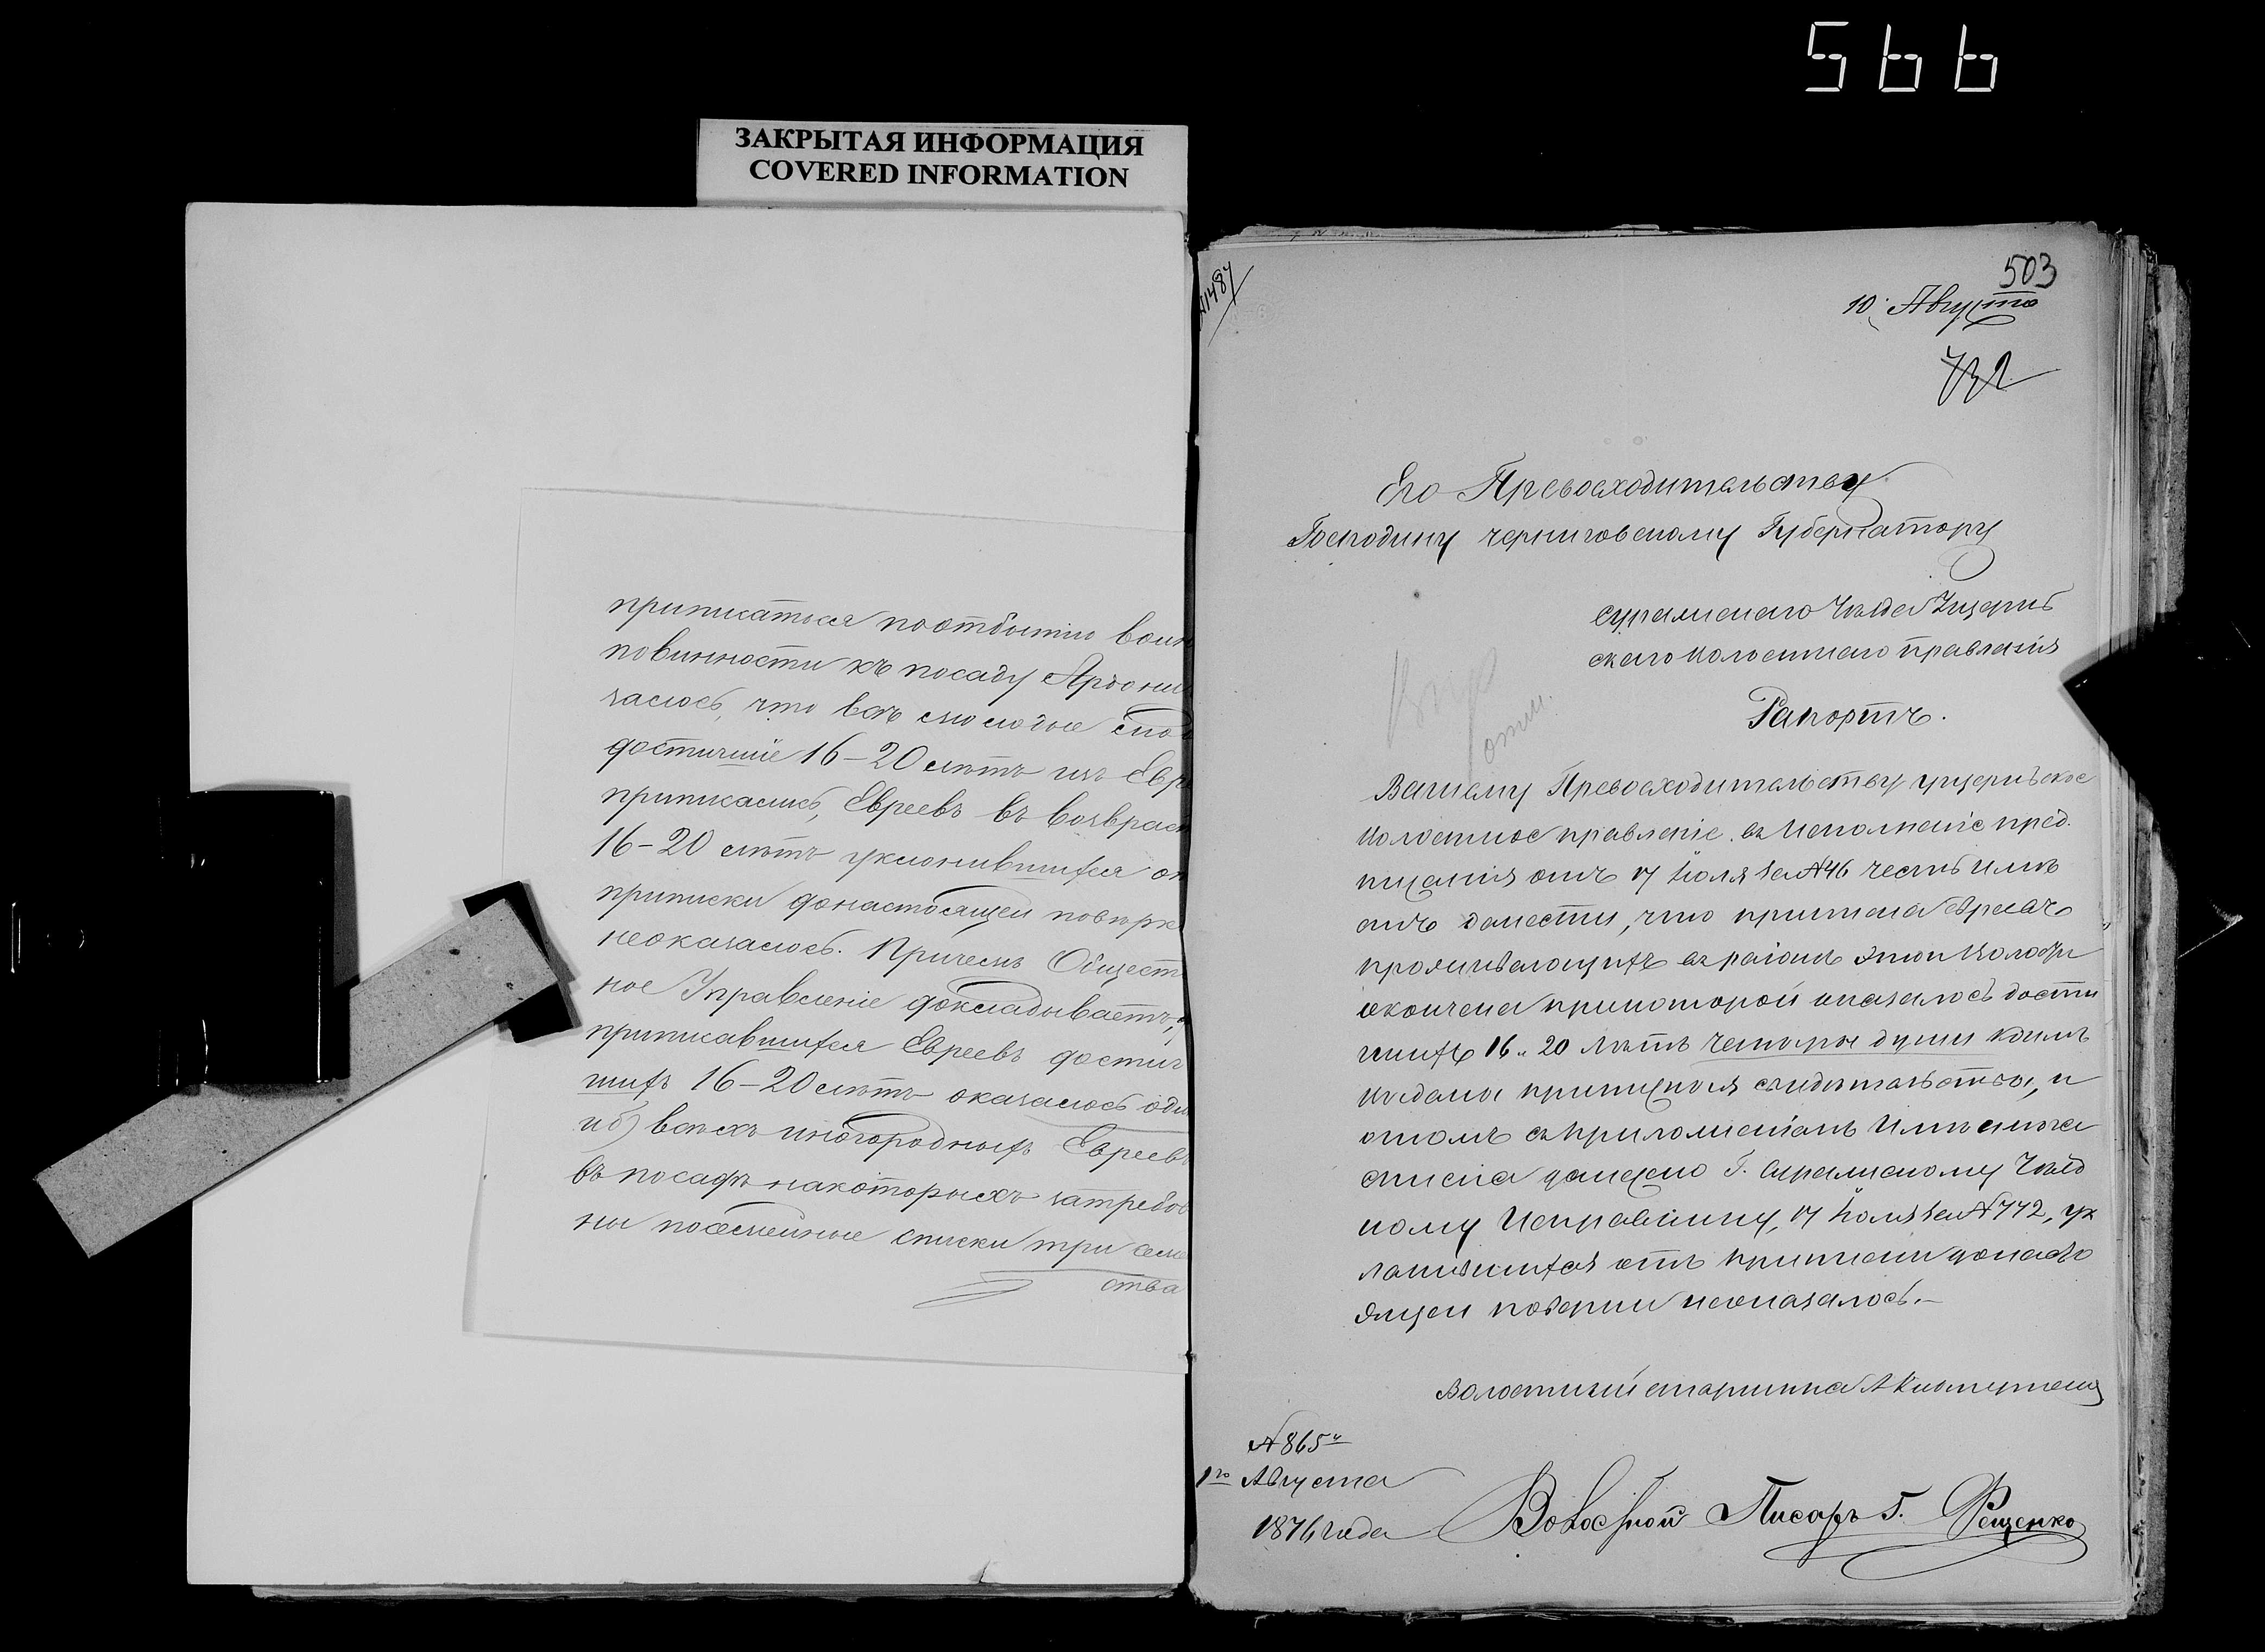 566
ЗАКРЫТАЯ ИНФОРМАЦИЯ
COVERED INFORMATION
приписаться по отбытіи воин
повинности къ посаду Ардони
залось, что всѣ молодые
достигшіе 16-20 лѣтъ изъ Евр
приписались, Евреевъ въ возраст
16-20 лѣтъ уклонившихся от
приписки до настоящей повѣрк
неоказалось. Причемъ Обществ
ное Управленіе докладываетъ,
приписавшихся Евреевъ достиг
шихъ 16-20 лѣтъ оказалось
иб) всѣхъ иногородныхъ Евреевъ
въ посадѣ на которыхъ затребов
ны посемейные списки три семе
ства
№1487
503
10 Августа
732
Его Превосходительству
Господину Черниговскому Губернатору
Суражскаго Уѣзда Ущерпь
скаго Волостнаго Правленія
Рапортъ.
Вашему Превосходительству Ущерпьское
Волостное правленіе въ исполненіе пред
писанія отъ 17 Іюля за №46 честь имѣ
етъ донести, что приписка Евреевъ
проживающихъ въ раіонѣ этой Волости
окончена при которой оказалось дости
гшихъ 16 и 20 лѣтъ четыре души коимъ
выданы приписныя свидѣтельства, и
о томъ съ приложеніемъ имъ списка
донесено Г. Суражскому Уѣзд
ному Исправнику, 17 Іюля за №772, ук
лонившихся отъ приписки до насто
ящей повѣрки неоказалось.
Волостный старшина
№ 865
1го Августа
1876 года
Волостной Писарь Г. Фещенко